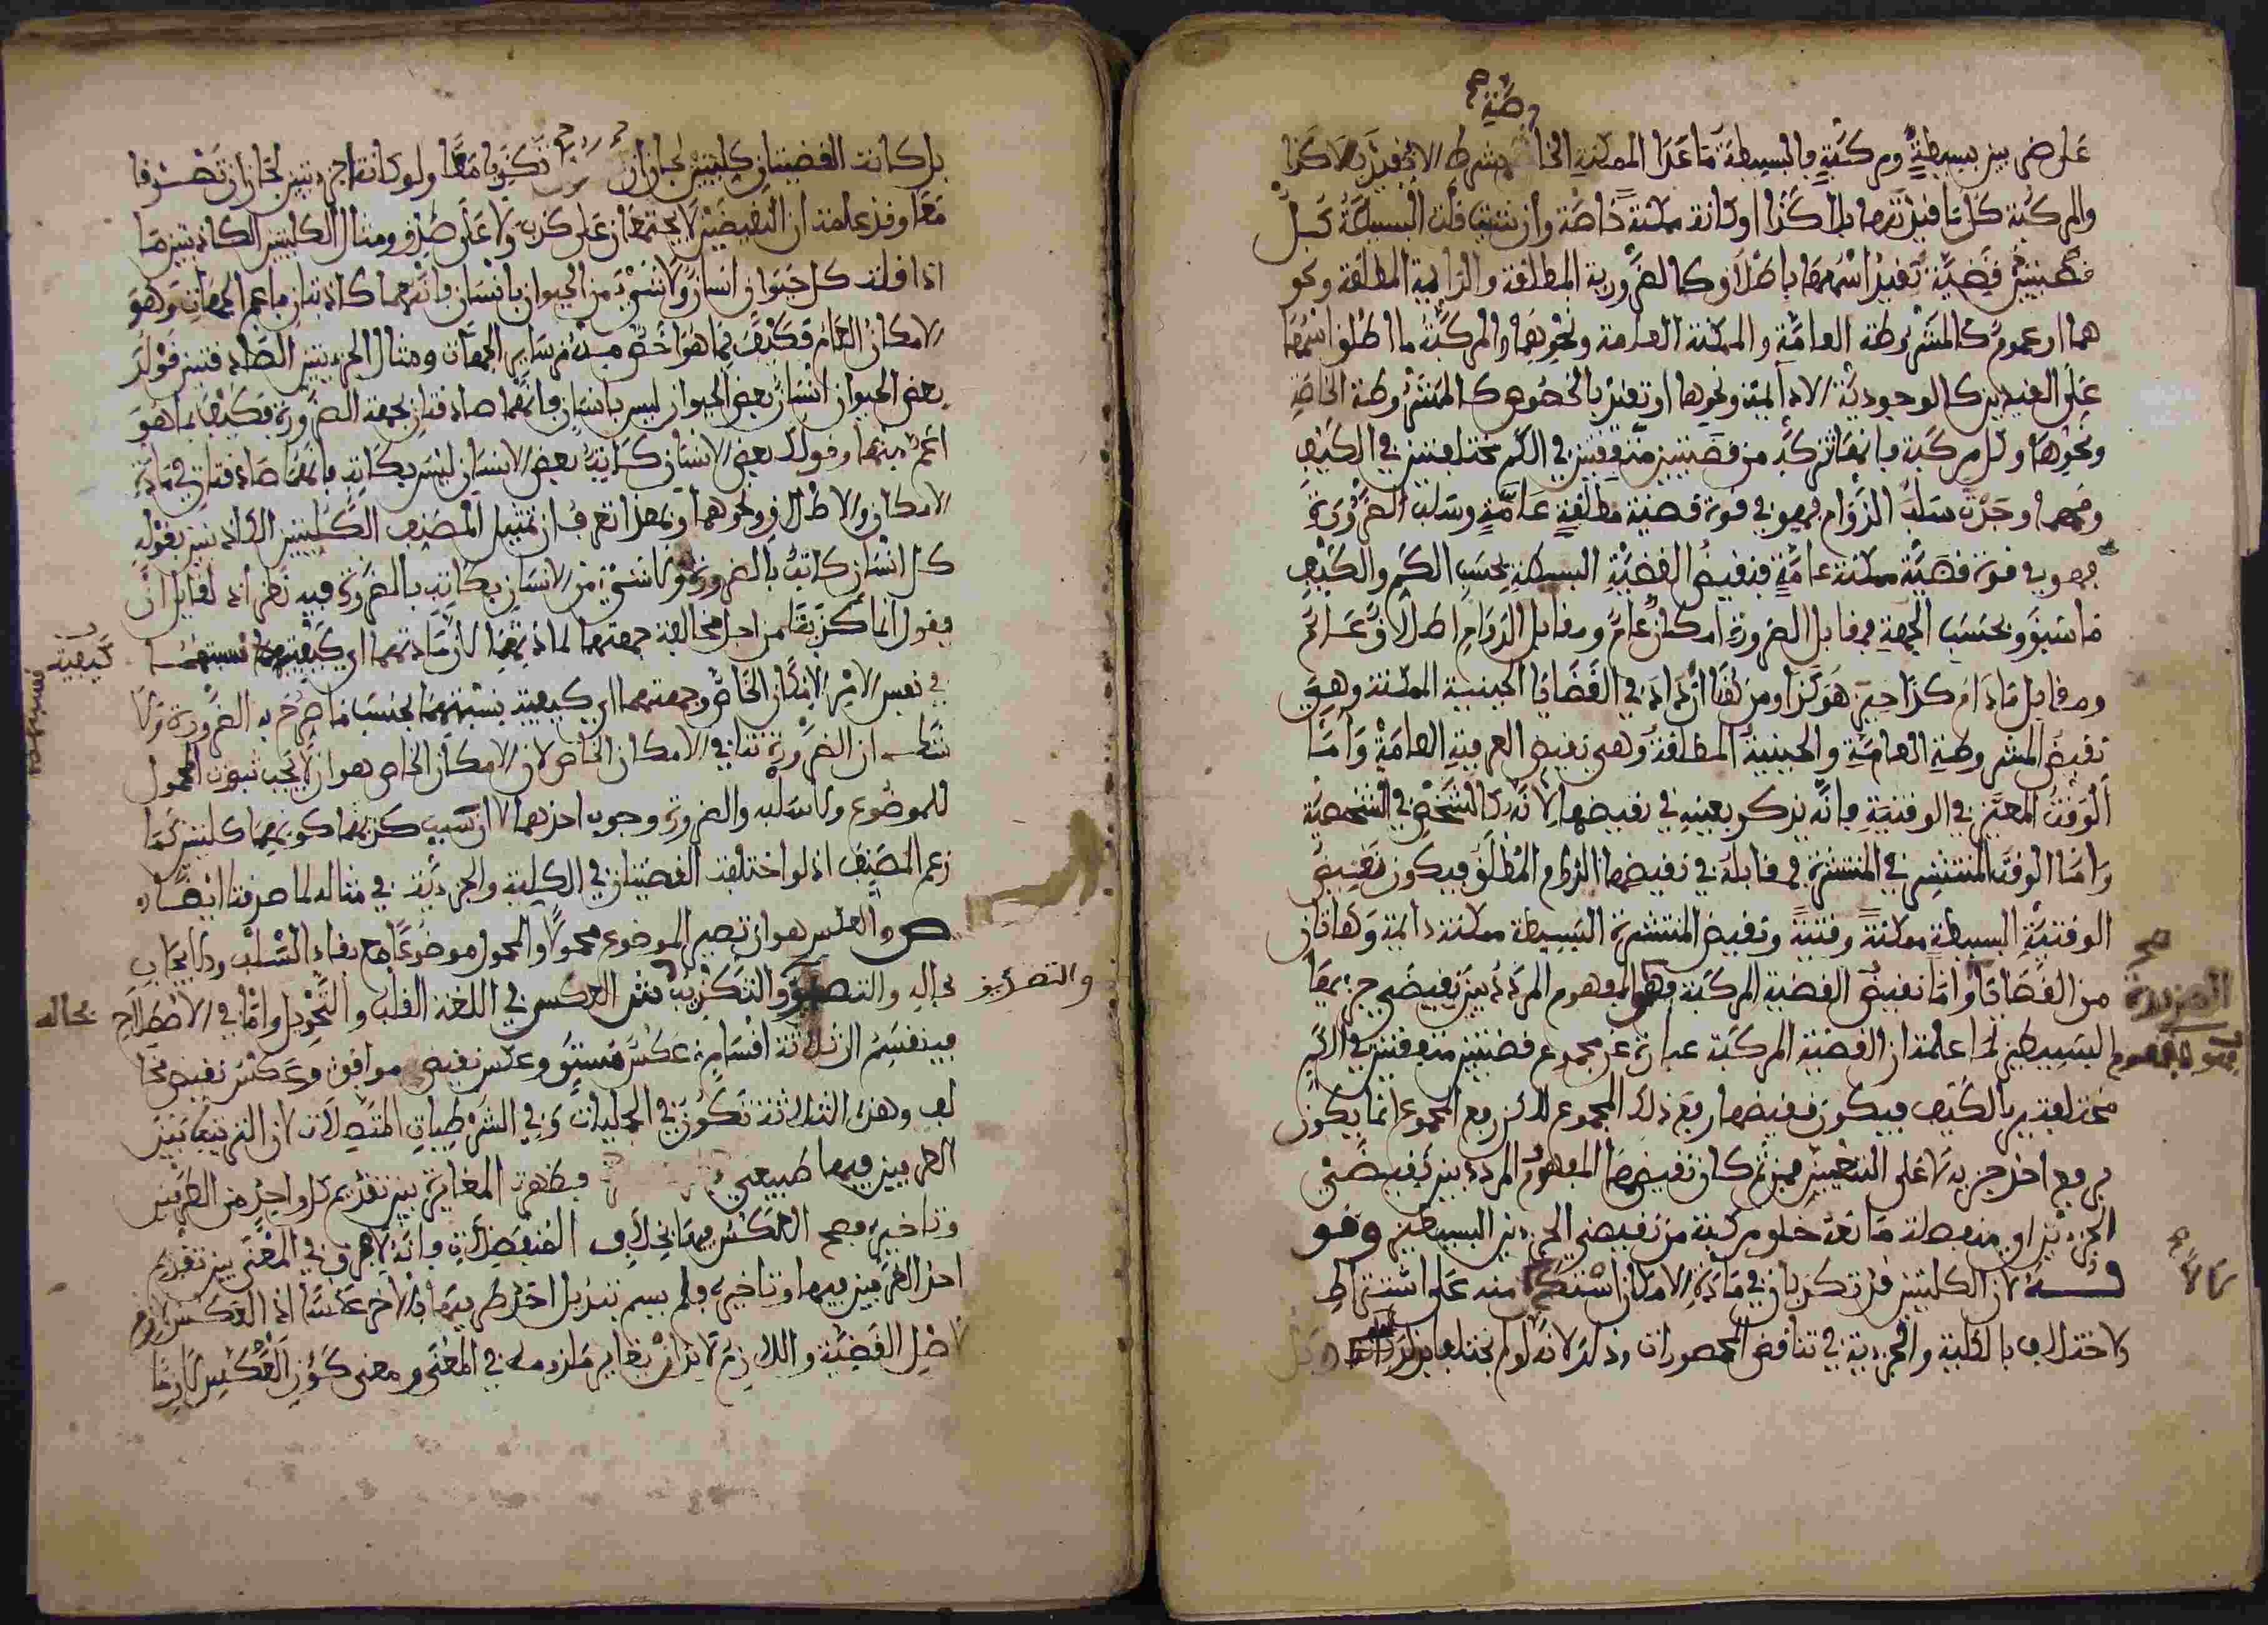 على ضربين بسيطة ومركبة فالبسيطة ما عدا الممكنة الخاصة بشرط الا تقيد بلا كذا
والمركبة كل ما قيد منها بلا كذا او كانت ممكنة خاصة وان شئت قلت البسيطة كل
قضية تفيد اسمها باطلاق كالضرورية المطلقة والدايمة المطلقة ونحو
هما او عموم كالمشروطة العامة والممكنة العامة ونحوهما والمركبة ما اطلق اسمها
على القيدين كالوجودية الادايمة ونحوها او تقيد بالخصوص كالمشروطة الخاصة
ونحوها وكل مركبة فانها تتركب من قضيتين متفقتين في الكم مختلفتين في الكيف
ومهما وجدت سلب الدوام فهو في قوة قضية مطلقة عامة وسلب الضرورة
فهو في قوة قضية ممكنة عامة فنقيض القضية البسيطة بحسب الكم والكيف
ما سبق وبحسب الجهة فمقابل الضرورة امكان عام ومقابل الدوام اطلاق عام
ومقابل ما دام كذا حين هو كذا ومن هنا ازداد في القضايا الحينية الممكنة وهي
نقيض المشروطة العامة والحينية المطلقة وهي نقيض العرفية العامة واما
الوقت المعين في الوقتية فانه يذكر بعينه في نقيضها لانه كالشخص في الشخصية
واما الوقت المنتشر في المنتشرة فمقابله في نقيضها الدوام المطلق فيكون نقيض
الوقتية البسيطة ممكنة وقتية ونقيض المنتشرة البسيطة ممكنة دايمة وهاتان
من القضايا واما نقيض القضية المركبة فهو المفهوم المردد بين نقيضي جزءيها
البسيطين لما علمت ان القضية المركبة عبارة عن مجموع قضيتين متفقتين في الكم
مختلفتين بالكيف فيكون نقيضها رفع ذلك المجموع لكن رفع المجموع انما يكون
برفع احد جزءيه لا على التعيين فمن ثم كان نقيضها المفهوم المردد بين نقيضي
الجزءين او منفصلة مانعة خلو مركبة من نقيضي الجزءين البسيطين وقو
له لان الكليتين قد تكذبان في مادة الامكان استدلالا منه على اشتراط
الاختلاف بالكلية والجزئية في تناقض المحصورات وذلك لانه لو لم يختلفا بذلك
بل كانت القضيتان كليتين لجاز ان تكذبا معا ولو كانتا جزءيتين لجاز ان تصدقا
معا وقد علمت ان النقيضين لا يجتمعان على كذب ولا على صدق ومثال الكليتين الكاذبتين ما
اذا قلت كل حيوان انسان ولا شيء من الحيوان بانسان فانهما كاذبتان باعم الجهات وهو
الامكان العام فكيف بما هو اخص منه من ساير الجهات ومثال الجزءيتين الصادقتين قولك
بعض الحيوان انسان بعض الحيوان ليس بانسان فانهما صادقتان بجهة الضرورة فكيف بما هو
اعم منها وقولك بعض الانسان كاتب بعض الانسان ليس بكاتب فانهما صادقتان في مادة
الامكان والاطلاق ونحوهما وبهذا تعرف ان تمثيل المصنف الكليتين الكاذبتين بقوله
كل انسان كاتب بالضرورة ولا شيء من الانسان بكاتب بالضرورة فيه نظر اذ لقايل ان
يقول انما كذبتا من اجل مخالفة جهتهما لمادتهما لان مادتهما اي كيفية نسبتهما
في نفس الامر الامكان الخاص وجهتهما اي كيفية نسبتهما بحسب ما صرح به الضرورة ولا
شك ان الضرورة تنافي الامكان الخاص لان الامكان الخاص هو ان لا يجب ثبوت المحمول
للموضوع ولا سلبه والضرورة وجوب احدهما لا ان سبب كذبهما كونهما كليتين كما
زعم المصنف اذ لو اختلفت القضيتان في الكلية والجزءية في مثاله لما صدقتا ايضا
ص والعكس هو ان تصير الموضوع محمولا والمحمول موضوعا مع بقاء السلب والايجاب
بحاله والتصديق والتكذيب ش العكس في اللغة القلب والتحويل واما في الاصطلاح
فينقسم الى ثلاثة اقسام عكس مستو وعكس نقيض موافق وعكس نقيض مخا
لف وهذه الثلاثة تكون في الحمليات وفي الشرطيات المتصلات لان الترتيب بين
الطرفين فيها طبيعي فظهرت المغايرة بين تقديم كل واحد من الطرفين
وتاخيره فصح العكس فيها بخلاف المنفصلات فانه لا فرق في المعنى بين تقديم
احد الطرفين فيها وتاخيره فلم يسم تبديل احد طرفيها بالاخر عكسا اذ العكس لازم
لاصل القضية واللازم لا بد ان يغاير ملزومه في المعنى ومعنى كون العكس لازما